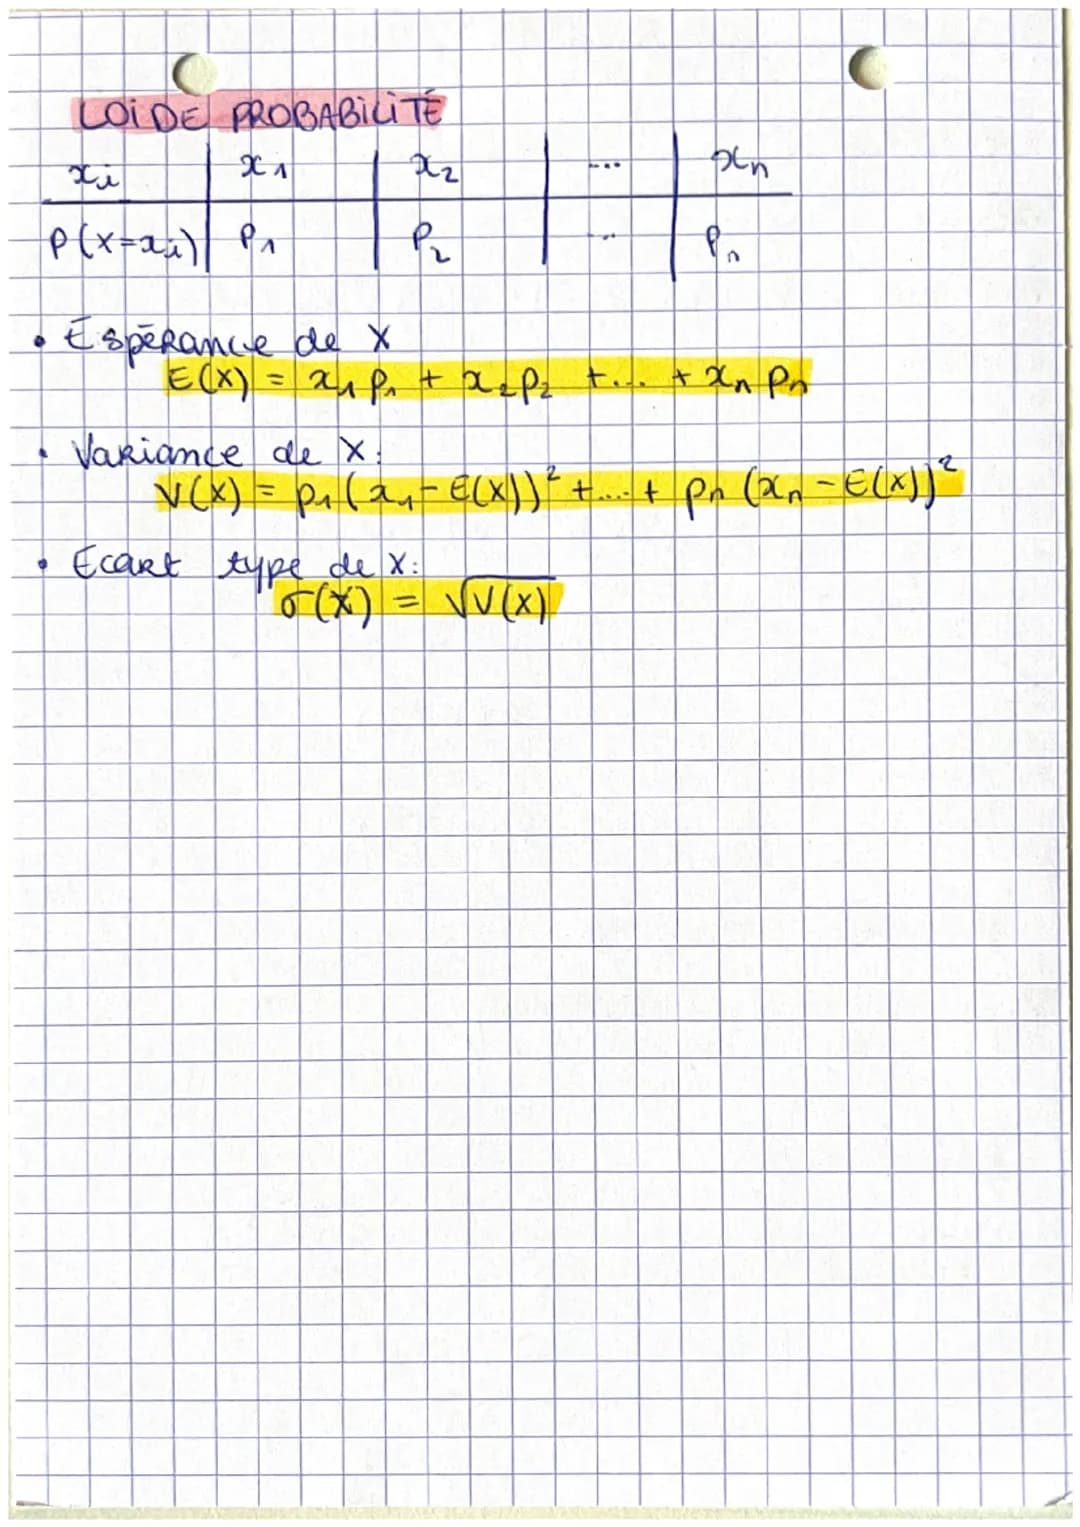 LOI DE PROBABILITÉ
xi | x1 | x2 | .... | xn
P(X=xi) | P1 | P2 | ... | Pn
• Espérance de X
E(X) = x1 p1 + x2 p2 + ... + xn pn
• Variance de X:
V(X) = p1 (x1 - E(X))² + .... + pn (xn - E(X))²
• Ecart type de X:
σ(X) = √V(X)